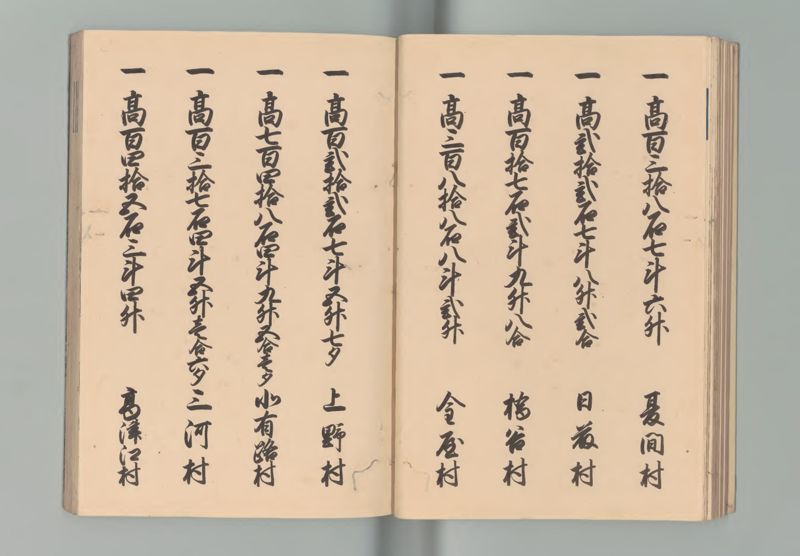 一 高百三拾八石七斗六升 夏間村
一 高弐拾弐石七斗八升弐合 日藪村
一 高百拾七石弐斗九升八合 橋谷村
一 高三百八拾八石八斗弐升 金屋村
一 高百弐拾弐石七斗五升七夕 上野村
一 高七百四拾八石四斗九升五合壱夕 小有路村
一 高百三拾七石四斗五升壱合六夕 三河村
一 高百四拾五石三斗四升 高津江村